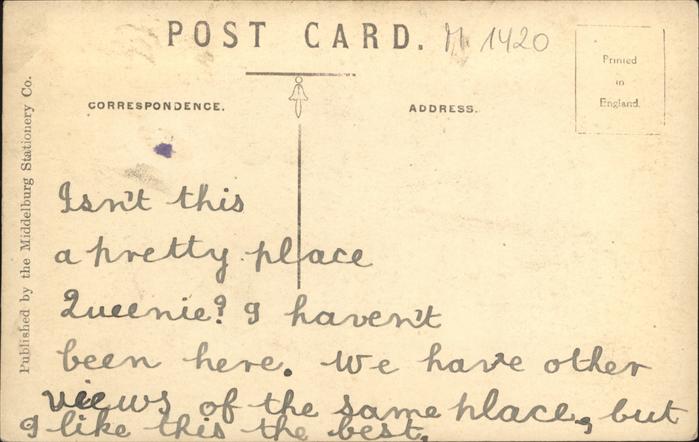 POST CARD. M 1420
Printed
in
England.
CORRESPONDENCE.
ADDRESS.
Published by the Middelburg Stationery Co.
Isn't this
a pretty place
Queenie? I haven't
been here. We have other
views of the same place, but
I like this the best.